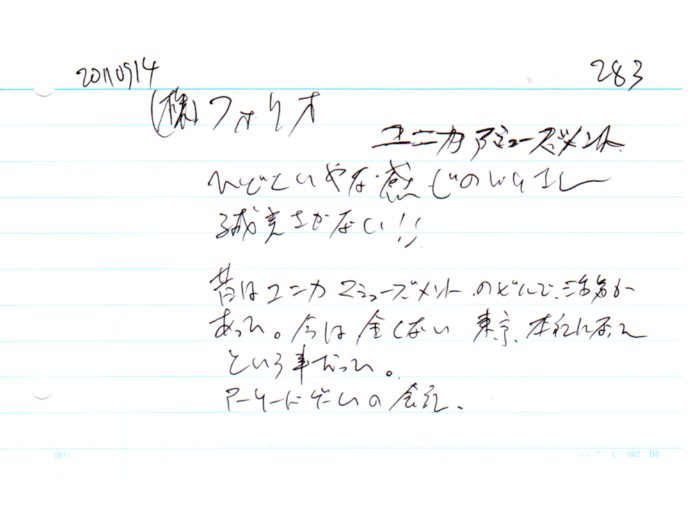 20110914
283
(株)フォリオ
ユニカアミューズメント
ひどくいやな感じの
誠実さがない!!
昔はユニカアミューズメント のどんで、
あった。今は全くない 東京、本社
という事だった。
アーケードゲームの会社.